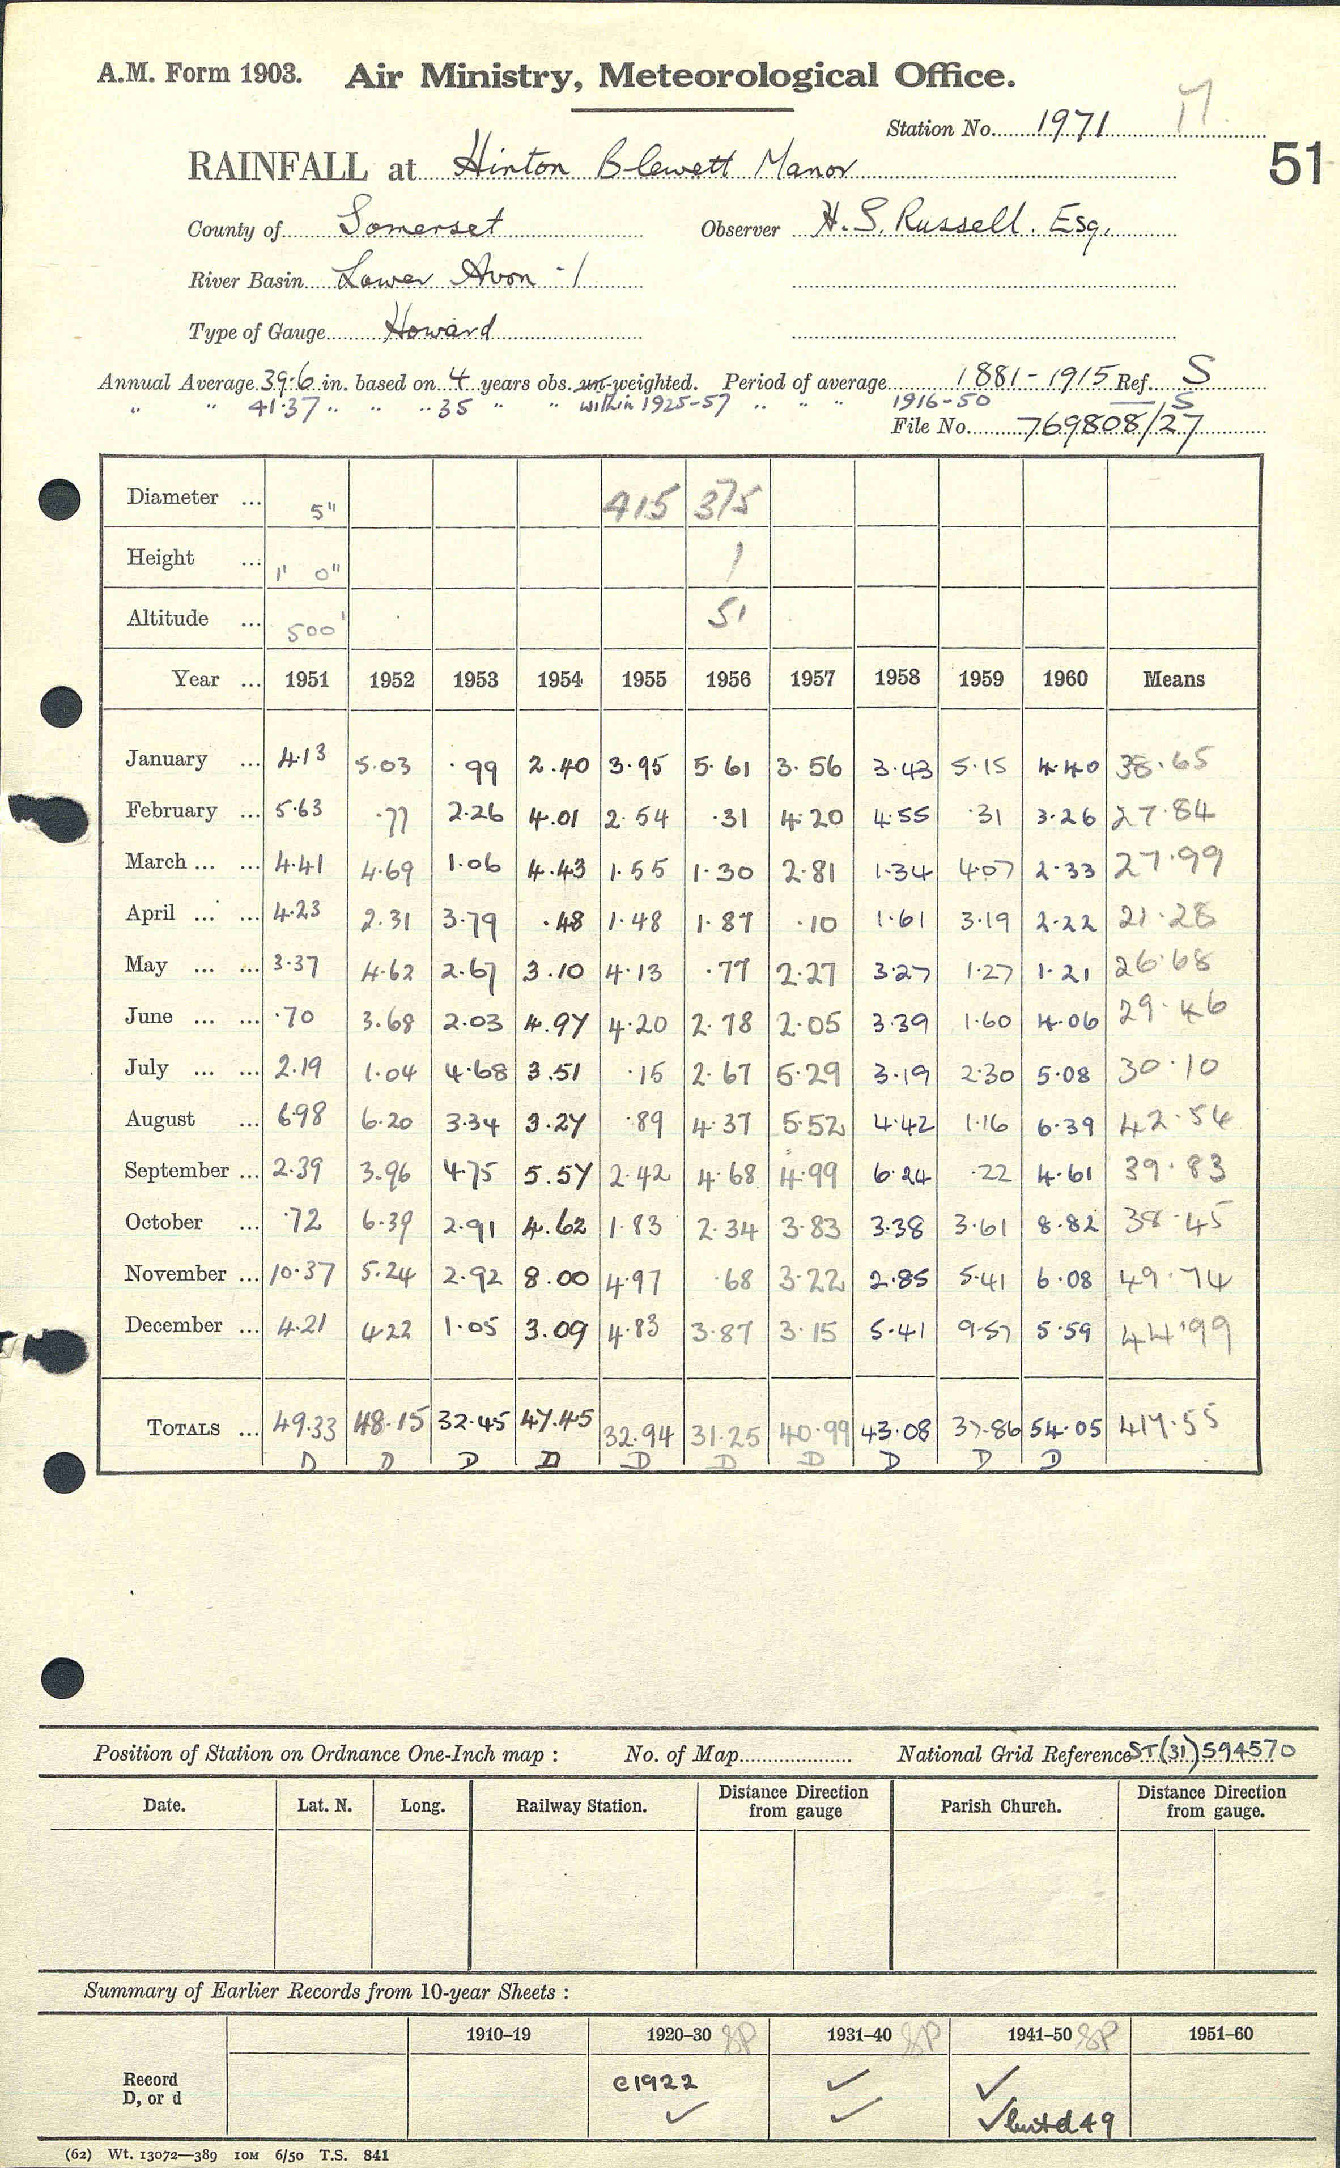 A.M. Form 1903. Air Ministry, Meteorological Office.
Station No. 1971 17
51
RAINFALL at Hinton Blewett Manor
County of Somerset Observer H. S. Russell. Esq.
River Basin Lower Avon - 1
Type of Gauge Howard
Annual Average 39.6 in. based on 4 years obs. un-weighted. Period of average 1881-1915 Ref. S
" " 41.37 " " " 35 " " within 1925-57 " " " 1916-50 S
File No. 769808/27
Diameter ... 5" 415 375
Height ... 1' 0" 1
Altitude ... 500' 51
Year ... 1951 1952 1953 1954 1955 1956 1957 1958 1959 1960 Means
January ... 4.13 5.03 .99 2.40 3.95 5.61 3.56 3.43 5.15 4.40 38.65
February ... 5.63 .77 2.26 4.01 2.54 .31 4.20 4.55 .31 3.26 27.84
March ... ... 4.41 4.69 1.06 4.43 1.55 1.30 2.81 1.34 4.07 2.33 27.99
April ... ... 4.23 2.31 3.79 .48 1.48 1.87 .10 1.61 3.19 2.22 21.28
May ... ... 3.37 4.62 2.67 3.10 4.13 .77 2.27 3.27 1.27 1.21 26.68
June ... ... .70 3.68 2.03 4.97 4.20 2.78 2.05 3.39 1.60 4.06 29.46
July ... ... 2.19 1.04 4.68 3.51 .15 2.67 5.29 3.19 2.30 5.08 30.10
August ... 6.98 6.20 3.34 3.27 .89 4.37 5.52 4.42 1.16 6.39 42.54
September ... 2.39 3.96 4.75 5.57 2.42 4.68 4.99 6.24 .22 4.61 39.83
October ... .72 6.39 2.91 4.62 1.83 2.34 3.83 3.38 3.61 8.82 38.45
November ... 10.37 5.24 2.92 8.00 4.97 .68 3.22 2.85 5.41 6.08 49.74
December ... 4.21 4.22 1.05 3.09 4.83 3.87 3.15 5.41 9.57 5.59 44.99
TOTALS ... 49.33 48.15 32.45 47.45 32.94 31.25 40.99 43.08 37.86 54.05 417.55
D D D D D D D D D D
Position of Station on Ordnance One-Inch map : No. of Map National Grid Reference ST(31)594570
Date. Lat. N. Long. Railway Station. Distance Direction from gauge Parish Church. Distance Direction from gauge.
Summary of Earlier Records from 10-year Sheets :
1910–19 1920–30 SP 1931–40 SP 1941–50 SP 1951–60
Record c1922 ✓ ✓
D, or d ✓ ✓ ✓ but d 49
(62) Wt. 13072—389 10M 6/50 T.S. 841